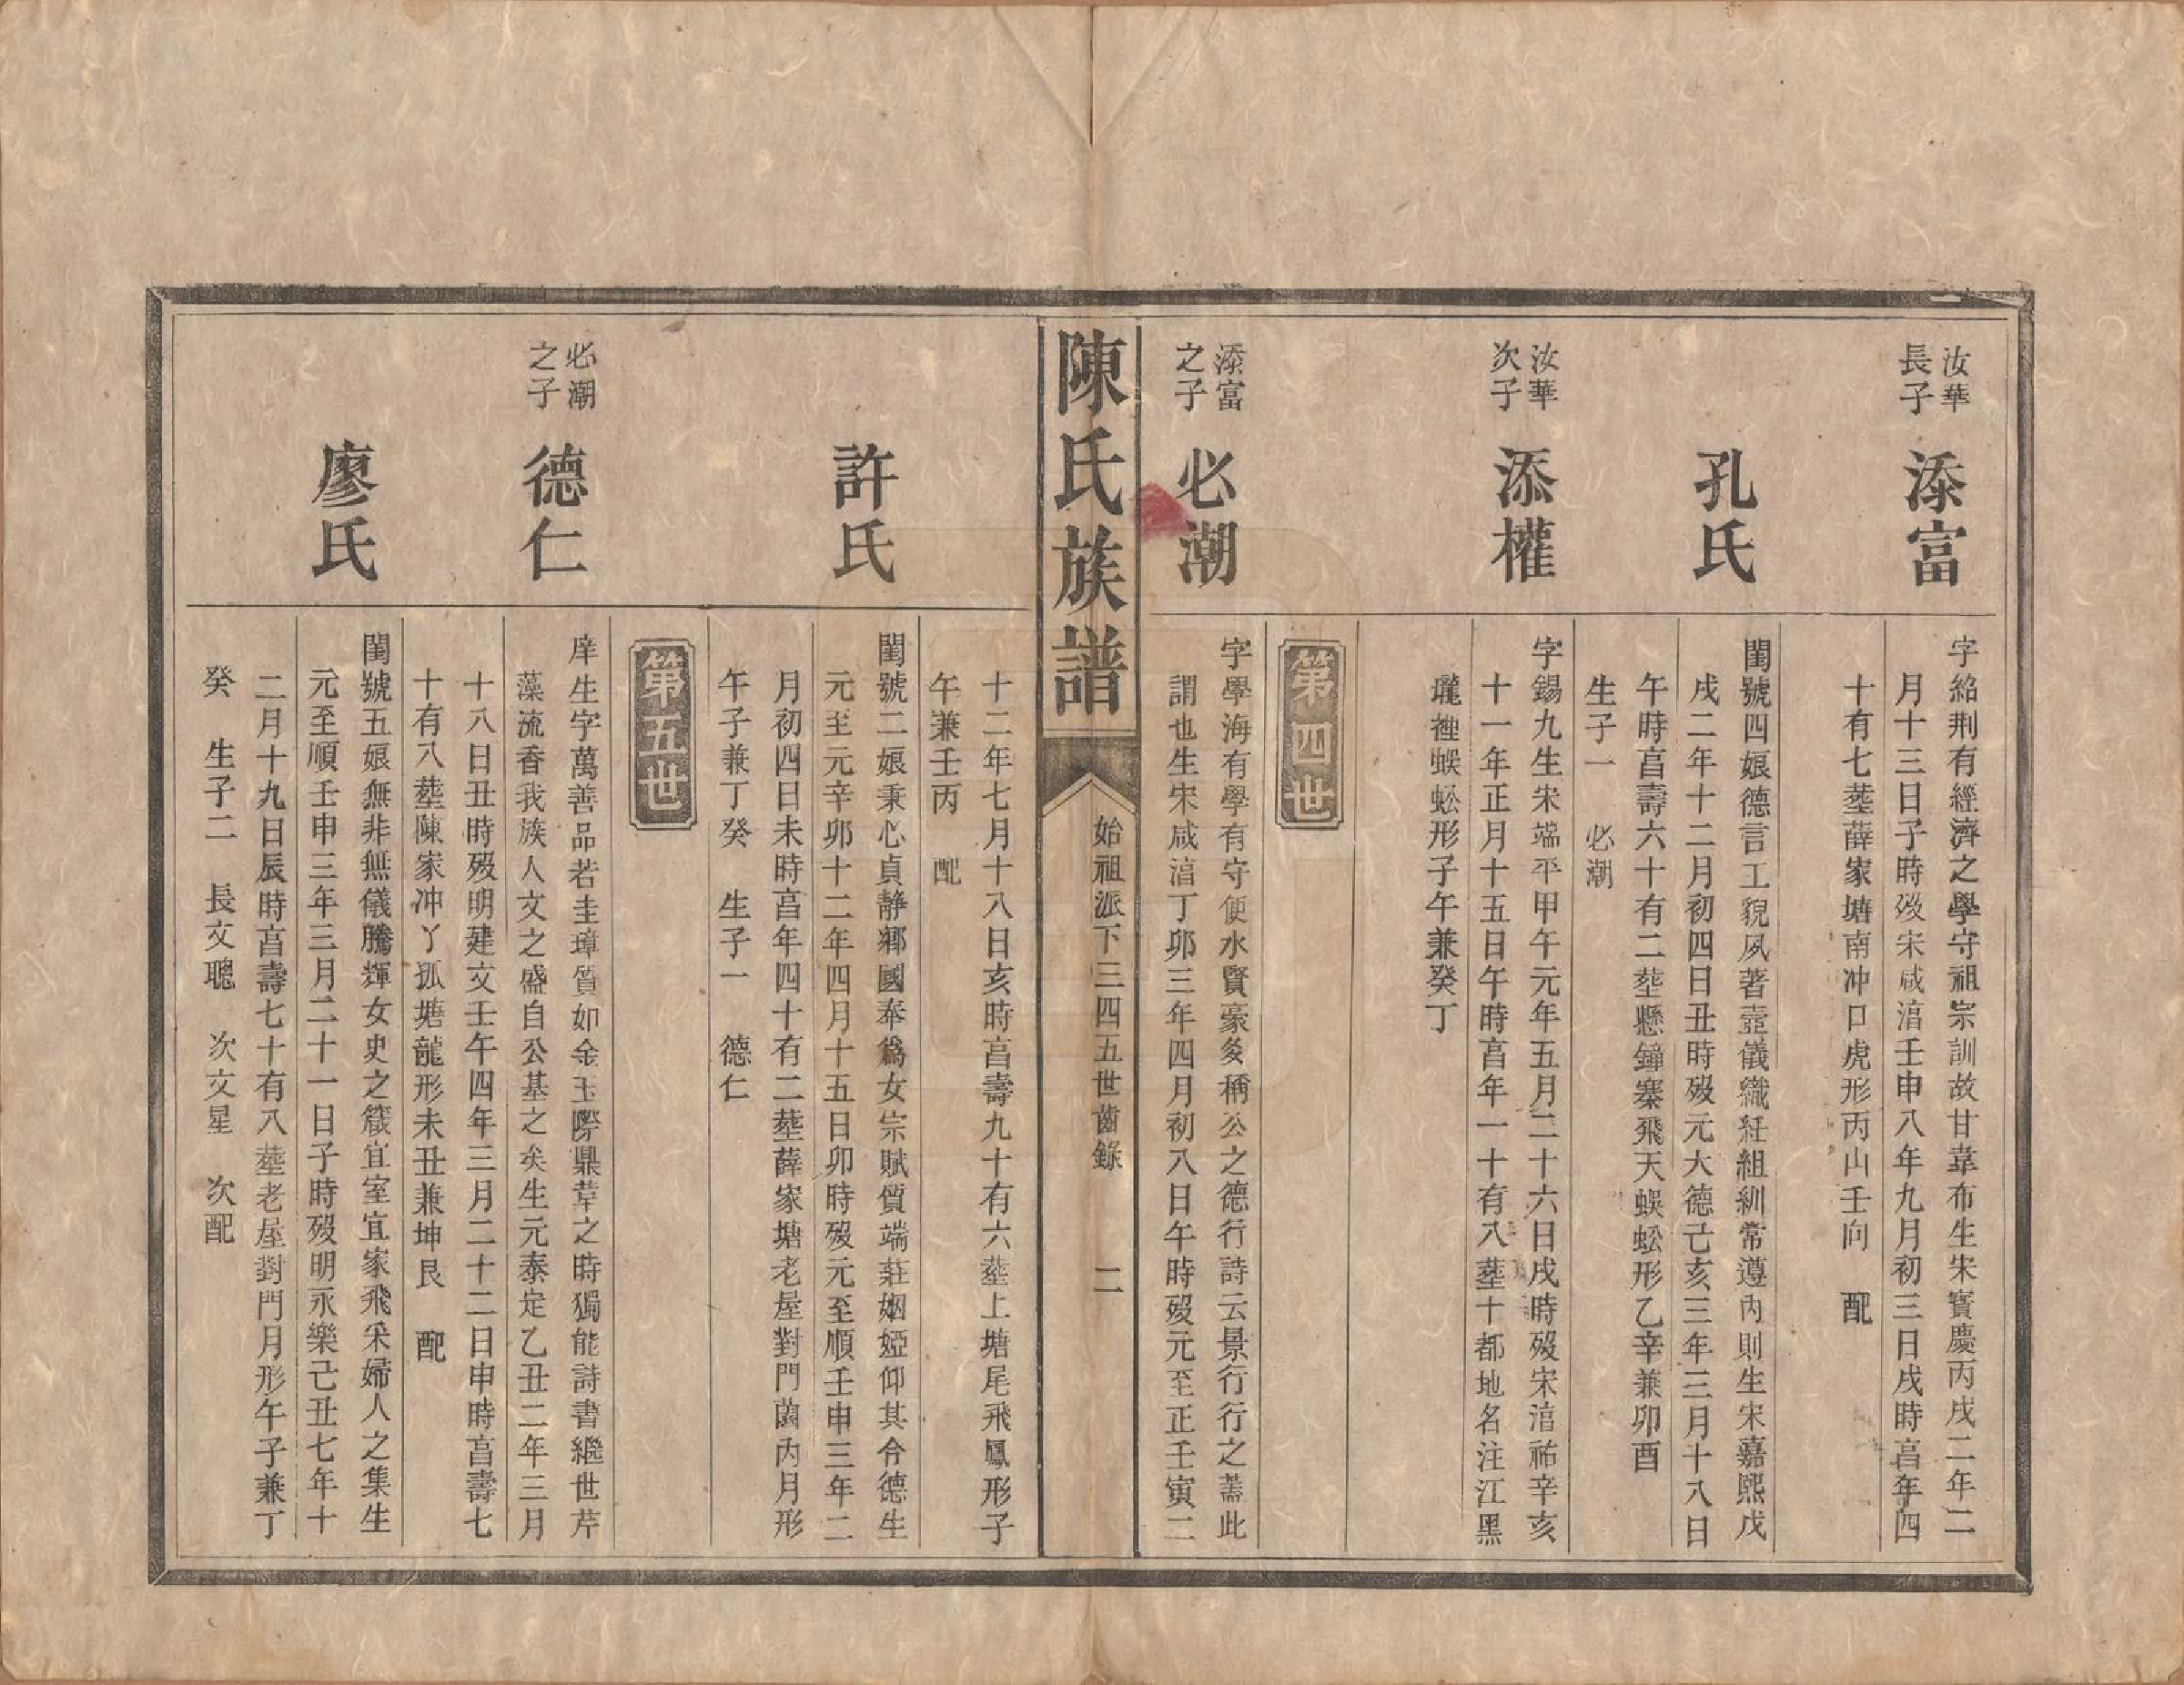 汝華
長子
添富
字紹荆有經濟之學守祖宗訓故甘韋布生宋寶慶丙戌二年二
月十三日子時殁宋咸淳壬申八年九月初三日戌時亯年四
十有七塟薛家塘南冲口虎形丙山壬向　配
孔氏
閨號四娘德言工貌夙著壼儀織紝組紃常遵内則生宋嘉熙戊
戌二年十二月初四日丑時殁元大德己亥三年三月十八日
午時亯壽六十有二塟懸鐘寨飛天蜈蚣形乙辛兼卯酉
生子一　必潮
汝華
次子
添權
字錫九生宋端平甲午元年五月二十六日戌時殁宋淳祐辛亥
十一年正月十五日午時亯年一十有八塟十都地名注江黑
壠裡蜈蚣形子午兼癸丁
第四世
添富
之子
必潮
字學海有學有守便水賢豪多稱公之德行詩云景行行之蓋此
謂也生宋咸淳丁卯三年四月初八日午時殁元至正壬寅二
陳氏族譜
始祖派下三四五世齒錄　二
十二年七月十八日亥時亯壽九十有六塟上塘尾飛鳳形子
午兼壬丙　配
許氏
閨號二娘秉心貞静鄉國奉爲女宗賦質端莊姻婭仰其令德生
元至元辛卯十二年四月十五日卯時殁元至順壬申三年二
月初四日未時亯年四十有二塟薛家塘老屋對門薗内月形
午子兼丁癸　生子一　德仁
第五世
必潮
之子
德仁
庠生字萬善品若圭璋質如金玉際鼎革之時獨能詩書繼世芹
藻流香我族人文之盛自公基之矣生元泰定乙丑二年三月
十八日丑時殁明建文壬午四年三月二十二日申時亯壽七
十有八塟陳家冲丫孤塘龍形未丑兼坤艮　配
廖氏
閨號五娘無非無儀騰輝女史之箴宜室宜家飛采婦人之集生
元至順壬申三年三月二十一日子時殁明永樂己丑七年十
二月十九日辰時亯壽七十有八塟老屋對門月形午子兼丁
癸　生子二　長文聰　次文星　次配